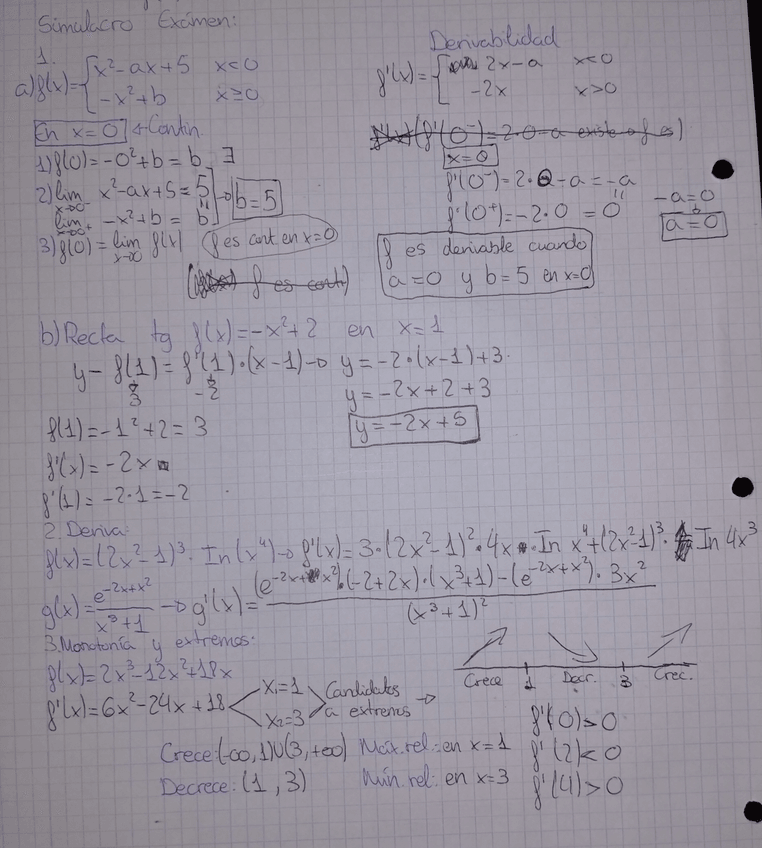 Simulacro Exámen:
1.
a) f(x)= { x²-ax+5 x<0
-x²+b x≥0
En x=0 Contin.
1) f(0)=-0²+b=b ∃
2) lim x→0⁻ x²-ax+5=5
lim x→0⁺ -x²+b = b → b=5
3) f(0)=lim x→0 f(x) f es cont. en x=0
f es cont
Derivabilidad
f'(x)= { 2x-a x<0
-2x x>0
f'(x) (f'(0⁻)=2·0-a existe f es)
x=0
f'(0⁻)=2·0-a=-a
f'(0⁺)=-2·0=0
-a=0
a=0
f es derivable cuando
a=0 y b=5 en x=0
b) Recta tg f(x)=-x²+2 en x=1
y-f(1)=f'(1)·(x-1)→ y=-2·(x-1)+3
3 -2 y=-2x+2+3
f(1)=-1²+2=3 y=-2x+5
f'(x)=-2x
f'(1)=-2·1=-2
2. Deriva:
f(x)=(2x²-1)³·In(x⁴)→f'(x)=3·(2x²-1)²·4x·In x⁴+(2x²-1)³· In 4x³
g(x)= e^(-2x+x²) / x³+1 → g'(x)= (e^(-2x+x²))·(-2+2x)·(x³+1)-(e^(-2x+x²))·3x² / (x³+1)²
3. Monotonía y extremos:
f(x)=2x³-12x²+18x
f'(x)=6x²-24x+18 x₁=1 x₂=3 Candidatos a extremos →
Crece 1 Decr. 3 Crec.
f'(0)>0
f'(2)<0
f'(4)>0
Crece: (-∞,1)∪(3,+∞) Máx. rel.: en x=1
Decrece: (1,3) Mín. rel: en x=3